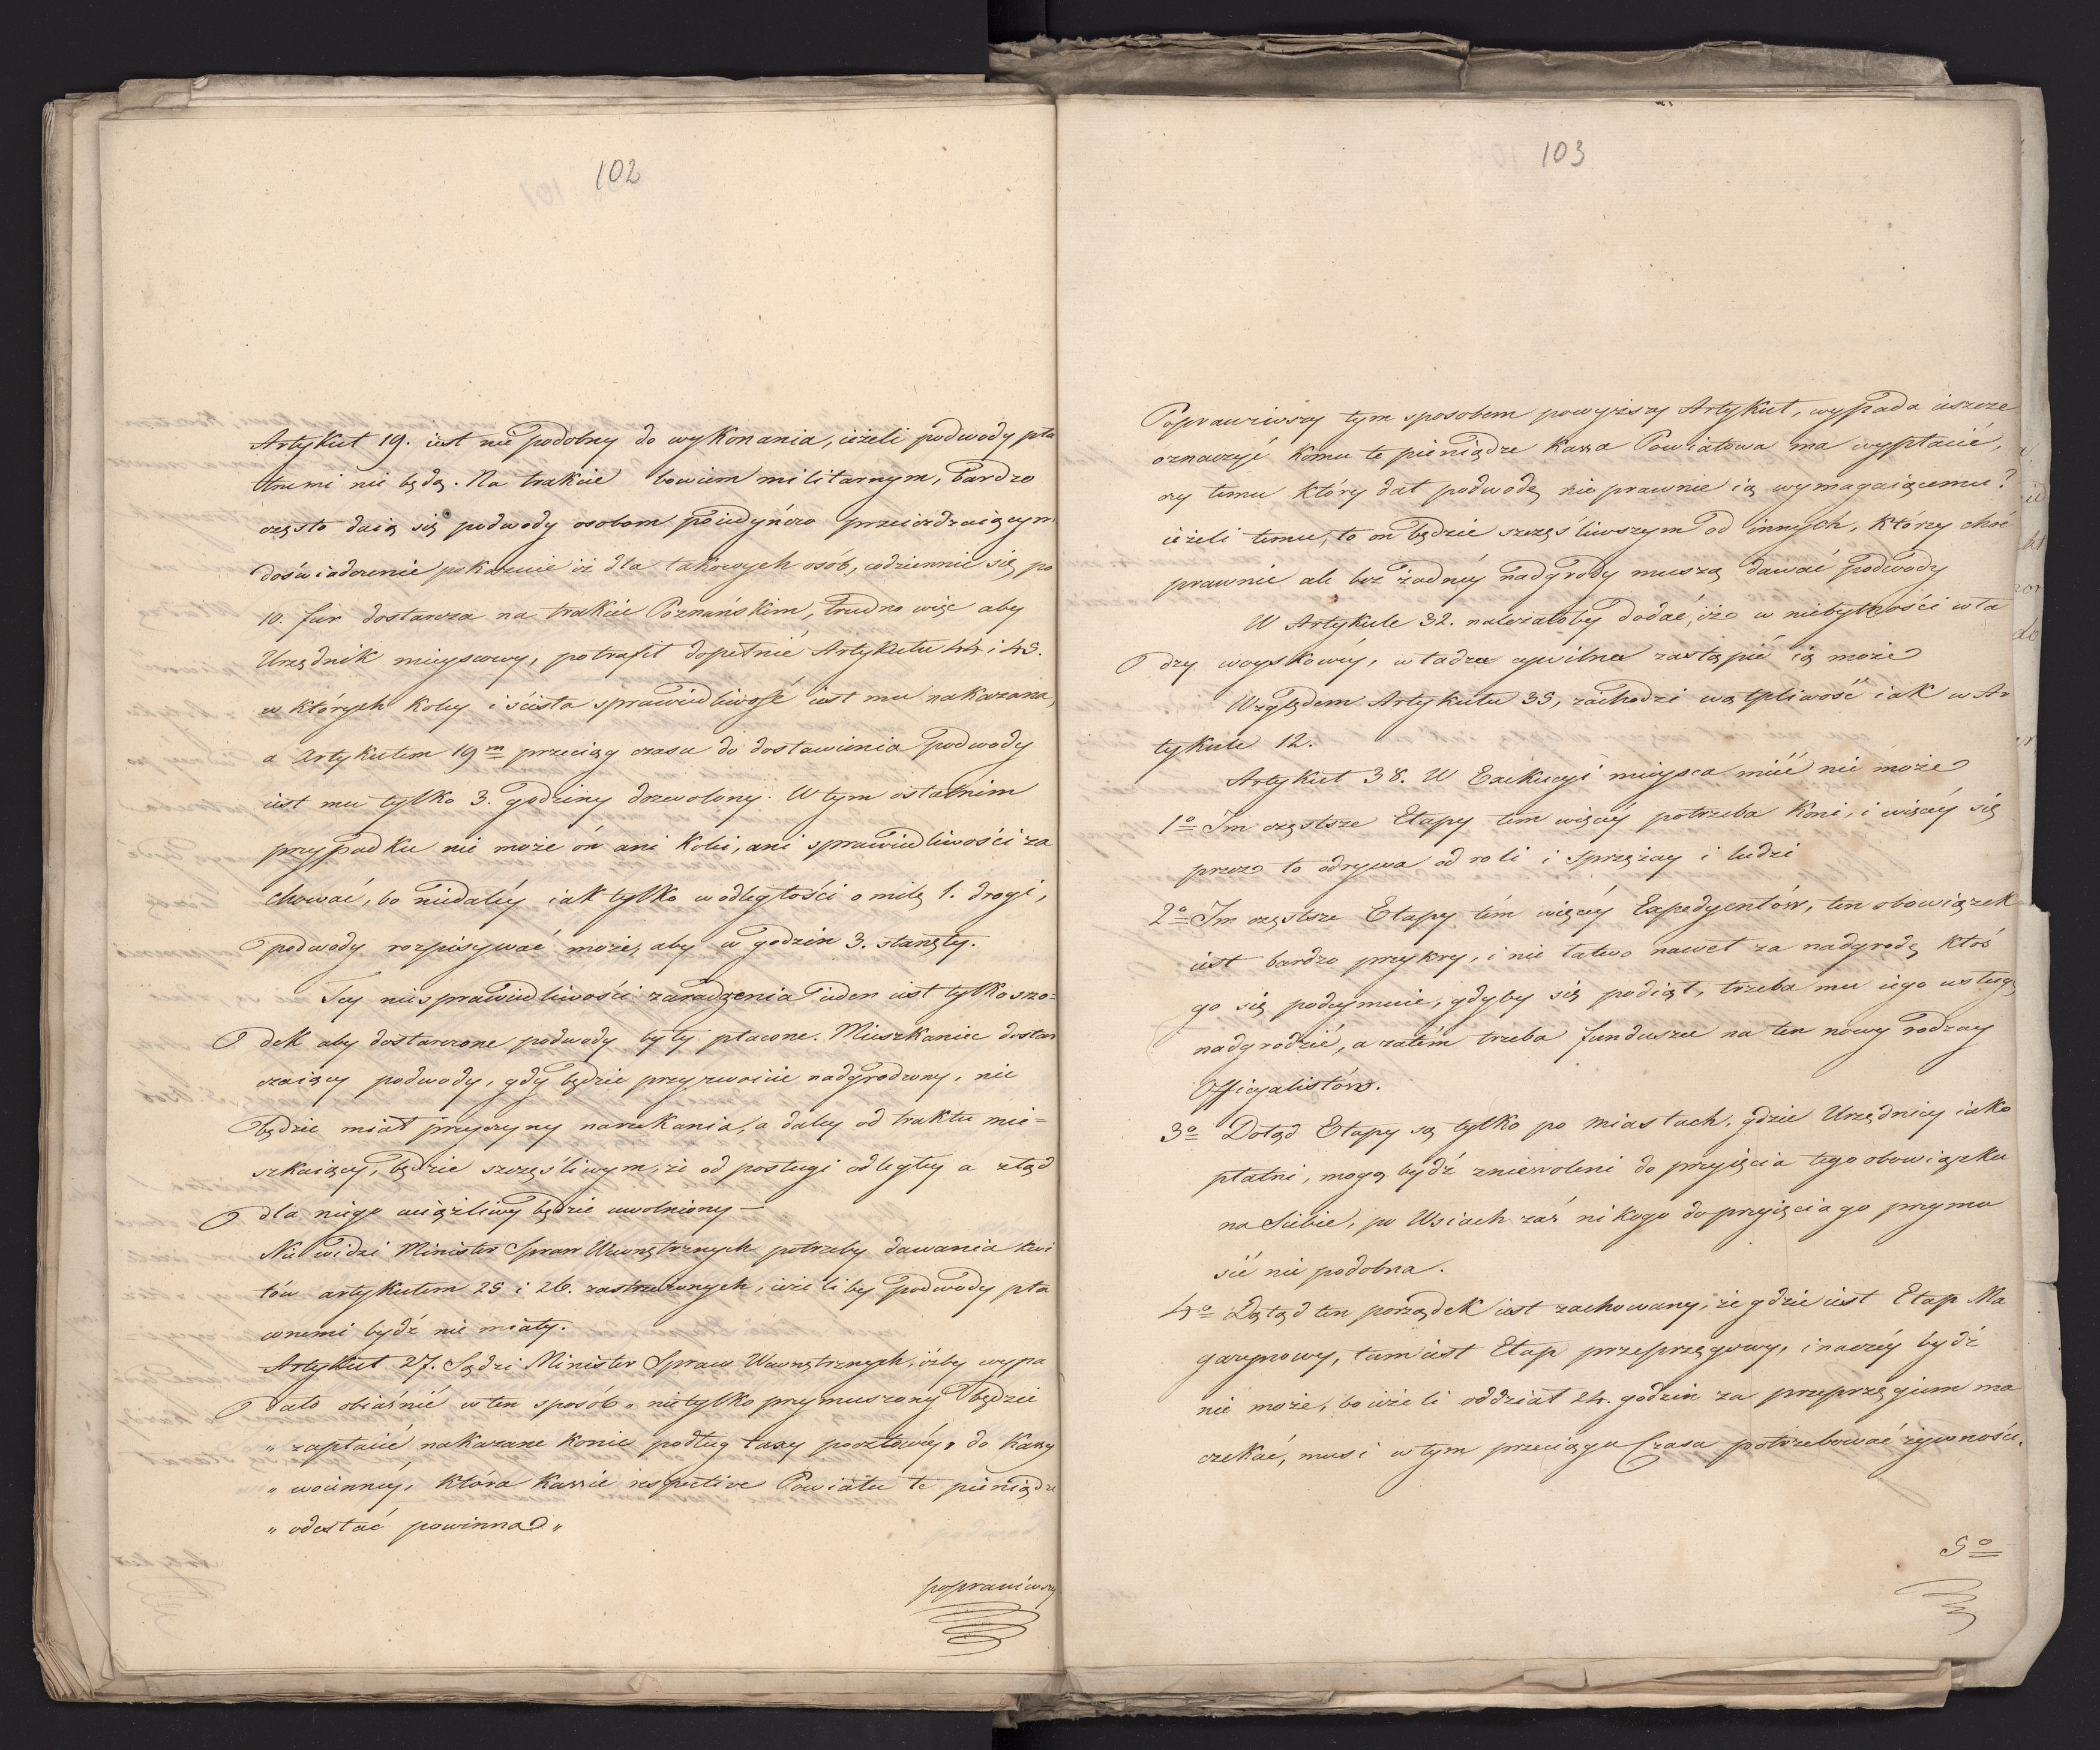 102
Artykuł 19. iest nie podobny do wykonania, ieżeli podwody pła
tnemi nie będą. Na trakcie bowiem militarnym, bardzo
często daią się podwody osobom poiedyńczo przeieżdzaiącym
doświadczenie pokazuie iż dla takowych osób, codziennie się po
10. fur dostarcza na trakcie Poznańskim, trudno więc aby
Urzędnik mieyscowy, potrafił dopełnić Artykułu 44 i 45.
w których koley i ścisła sprawiedliwość iest mu nakazana,
a Artykułem 19m przeciąg czasu do dostawienia podwody
iest mu tylko 3. godziny dozwolony. W tym ostatnim
przypadku nie może ón ani kolei, ani sprawiedliwości za
chować, bo niedaléy iak tylko w odległości o milę 1. drogi,
podwody rozpisywać może, aby w godzin 3. stanęły.
Tey niesprawiedliwości zaradzenia ieden iest tylko szo=
dek aby dostarczone podwody były płacone. Mieszkaniec dostar
czaiący podwody, gdy będzie przyzwoicie nadgrodzony, nie
będzie miał przyczyny narzekania, a daley od traktu mie=
szkaiący, będzie szczęśliwym, iż od posługi odległey a ztąd
dla niego uciążliwey będzie uwolniony —
Nie widzi Minister Spraw Wewnętrznych potrzeby dawania kwi
tów artykułem 25 i 26. zastrzeżonych, ieżeliby podwody pła
conemi bydź nie miały.
Artykuł 27. Sądzi Minister Spraw Wewnętrznych, iżby wypa
dało obiaśnić w ten sposób „ nietylko przymuszony będzie
„ zapłacić nakazane konie podług taxy pocztowéy, do Kassy
„ woienney, która Kassie respective Powiatu te pieniądze
„ odesłać powinna „
poprawiwszy
103
Poprawiwszy tym sposobem powyższy Artykuł, wypada ieszcze
oznaczyć komu te pieniądze Kassa Powiatowa ma wypłacić,
czy temu który dał podwodę nieprawnie ią wymagaiącemu?
ieżeli temu, to on będzie szczęśliwszym od innych, którzy choć
prawnie ale bez żadnéy nadgrody muszą dawać podwody
W Artykule 32. należałoby dodać, iże w niebytności wła
dzy woyskowéy, władza cywilna zastąpić ią może
Względem Artykułu 35, zachodzi wątpliwość iak w Ar
tykule 12.
Artykuł 38. W Exekucyi mieysca mieć nie może
1o Im częstsze Etapy tem więcéy potrzeba koni, i więcéy się
przez to odrywa od roli i sprzężay i ludzi
2o Im częstsze Etapy tém więcéy Expedyentów, ten obowiązek
iest bardzo przykry, i nie łatwo nawet za nadgrodę ktoś
go się podeymuie, gdyby się podiął, trzeba mu iego usługę
nadgrodzić, a zatém trzeba fundusze na ten nowy rodzay
Officyalistów.
3o Dotąd Etapy są tylko po miastach, gdzie Urzędnicy iako
płatni, mogą bydź zniewoleni do przyięcia tego obowiązku
na siebie, po Wsiach zaś nikogo do przyięcia go przymu
sić nie podobna.
4o Dotąd ten porządek iest zachowany, że gdzie iest Etap Ma
gazynowy, tam iest Etap przeprzęgowy, inaczéy bydź
nie może, bo ieżeli oddział 24. godzin za przeprzęgiem ma
czekać, musi w tym przeciągu Czasu potrzebować żywności.
5o